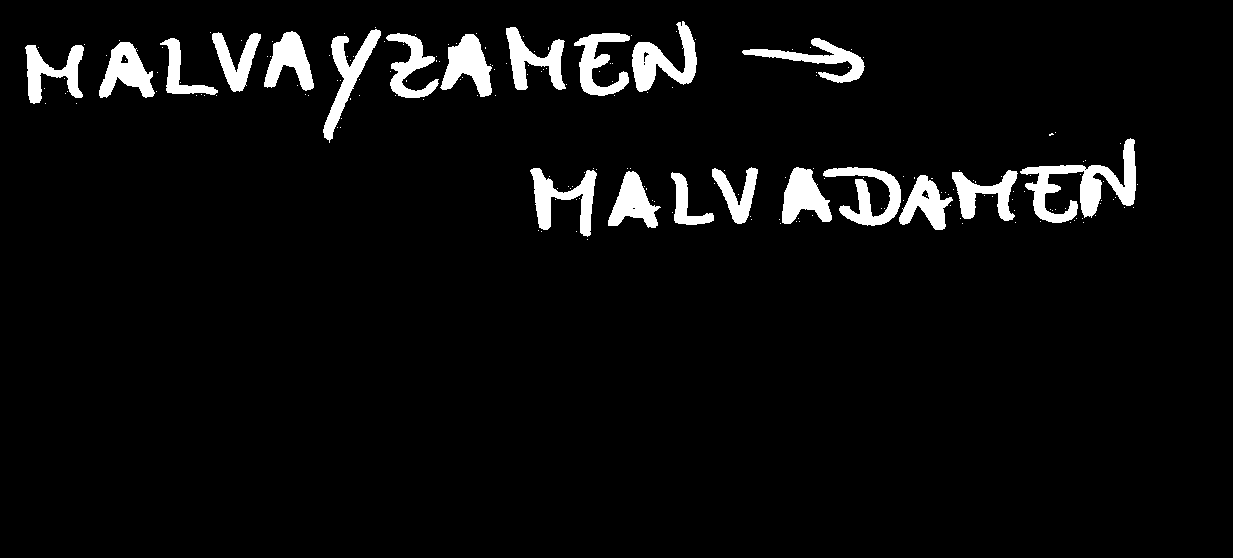 MALVAYZAMEN →
MALVADAMEN